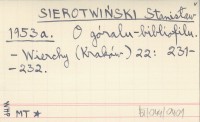 SIEROTWIŃSKI Stanisław
1953a. O góralu-bibliofilu.
- Wierchy (Kraków) 22: 231-
-232.
MT *